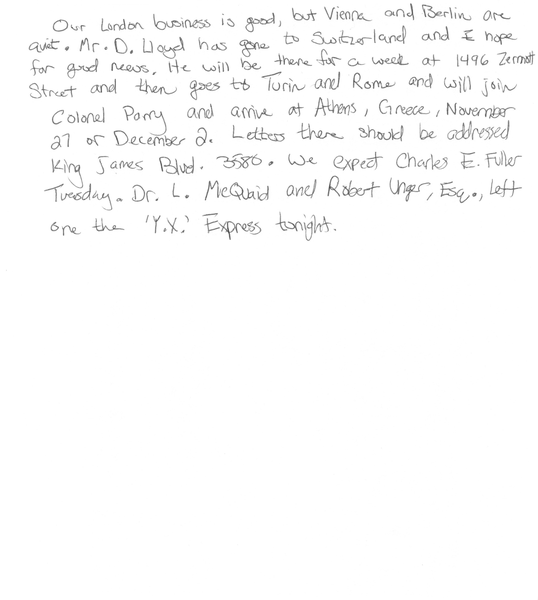 Our London business is good, but Vienna and Berlin are
quit. Mr. D. Lloyd has gone to Switzerland and I hope
for good news. He will be there for a week at 1496 Zermott
Street and then goes to Turin and Rome and will join
Colonel Parry and arrive at Athens, Greece, November
27 or December 2. Letters there should be addressed
King James Blvd. 3580. We expect Charles E. Fuller
Tuesday. Dr. L. McQuaid and Robert Unger, Esq., left
one the 'Y.X.' Express tonight.